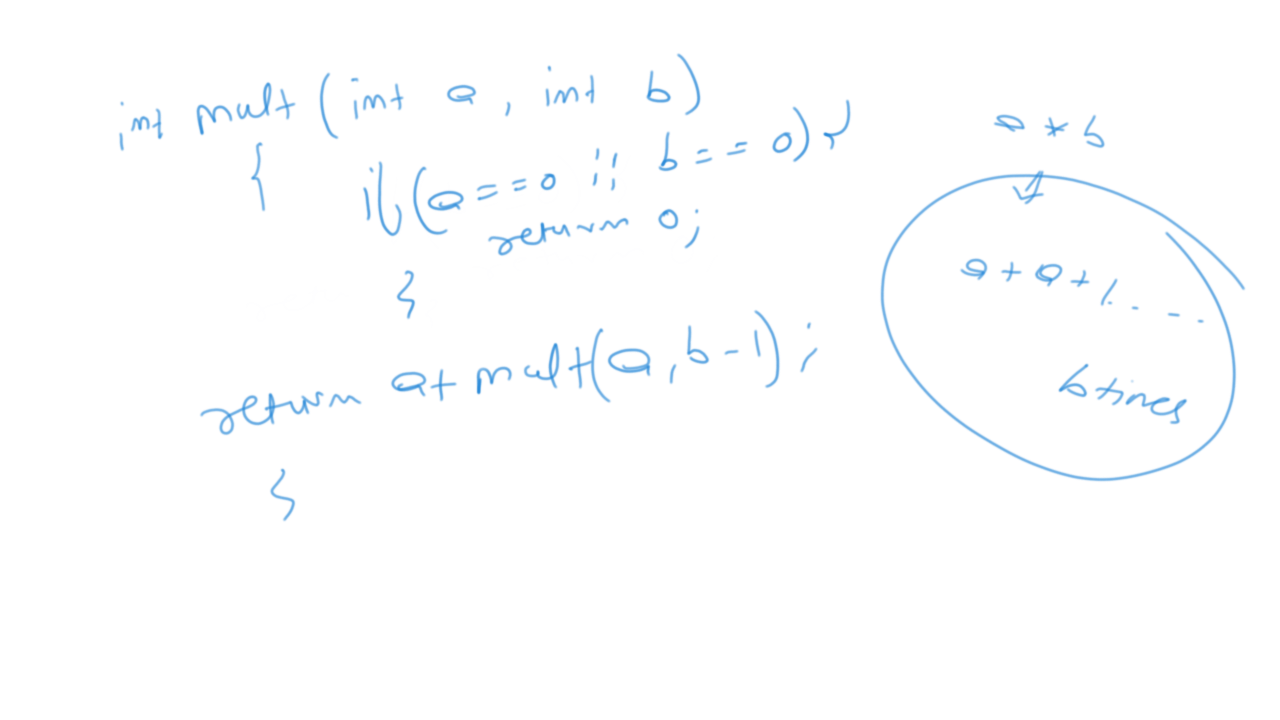 int mult (int a, int b)
{ if (a==0 || b==0) {
return 0;
}
return a+mult(a,b-1);
}
a * b
a + a + . . . .
b times